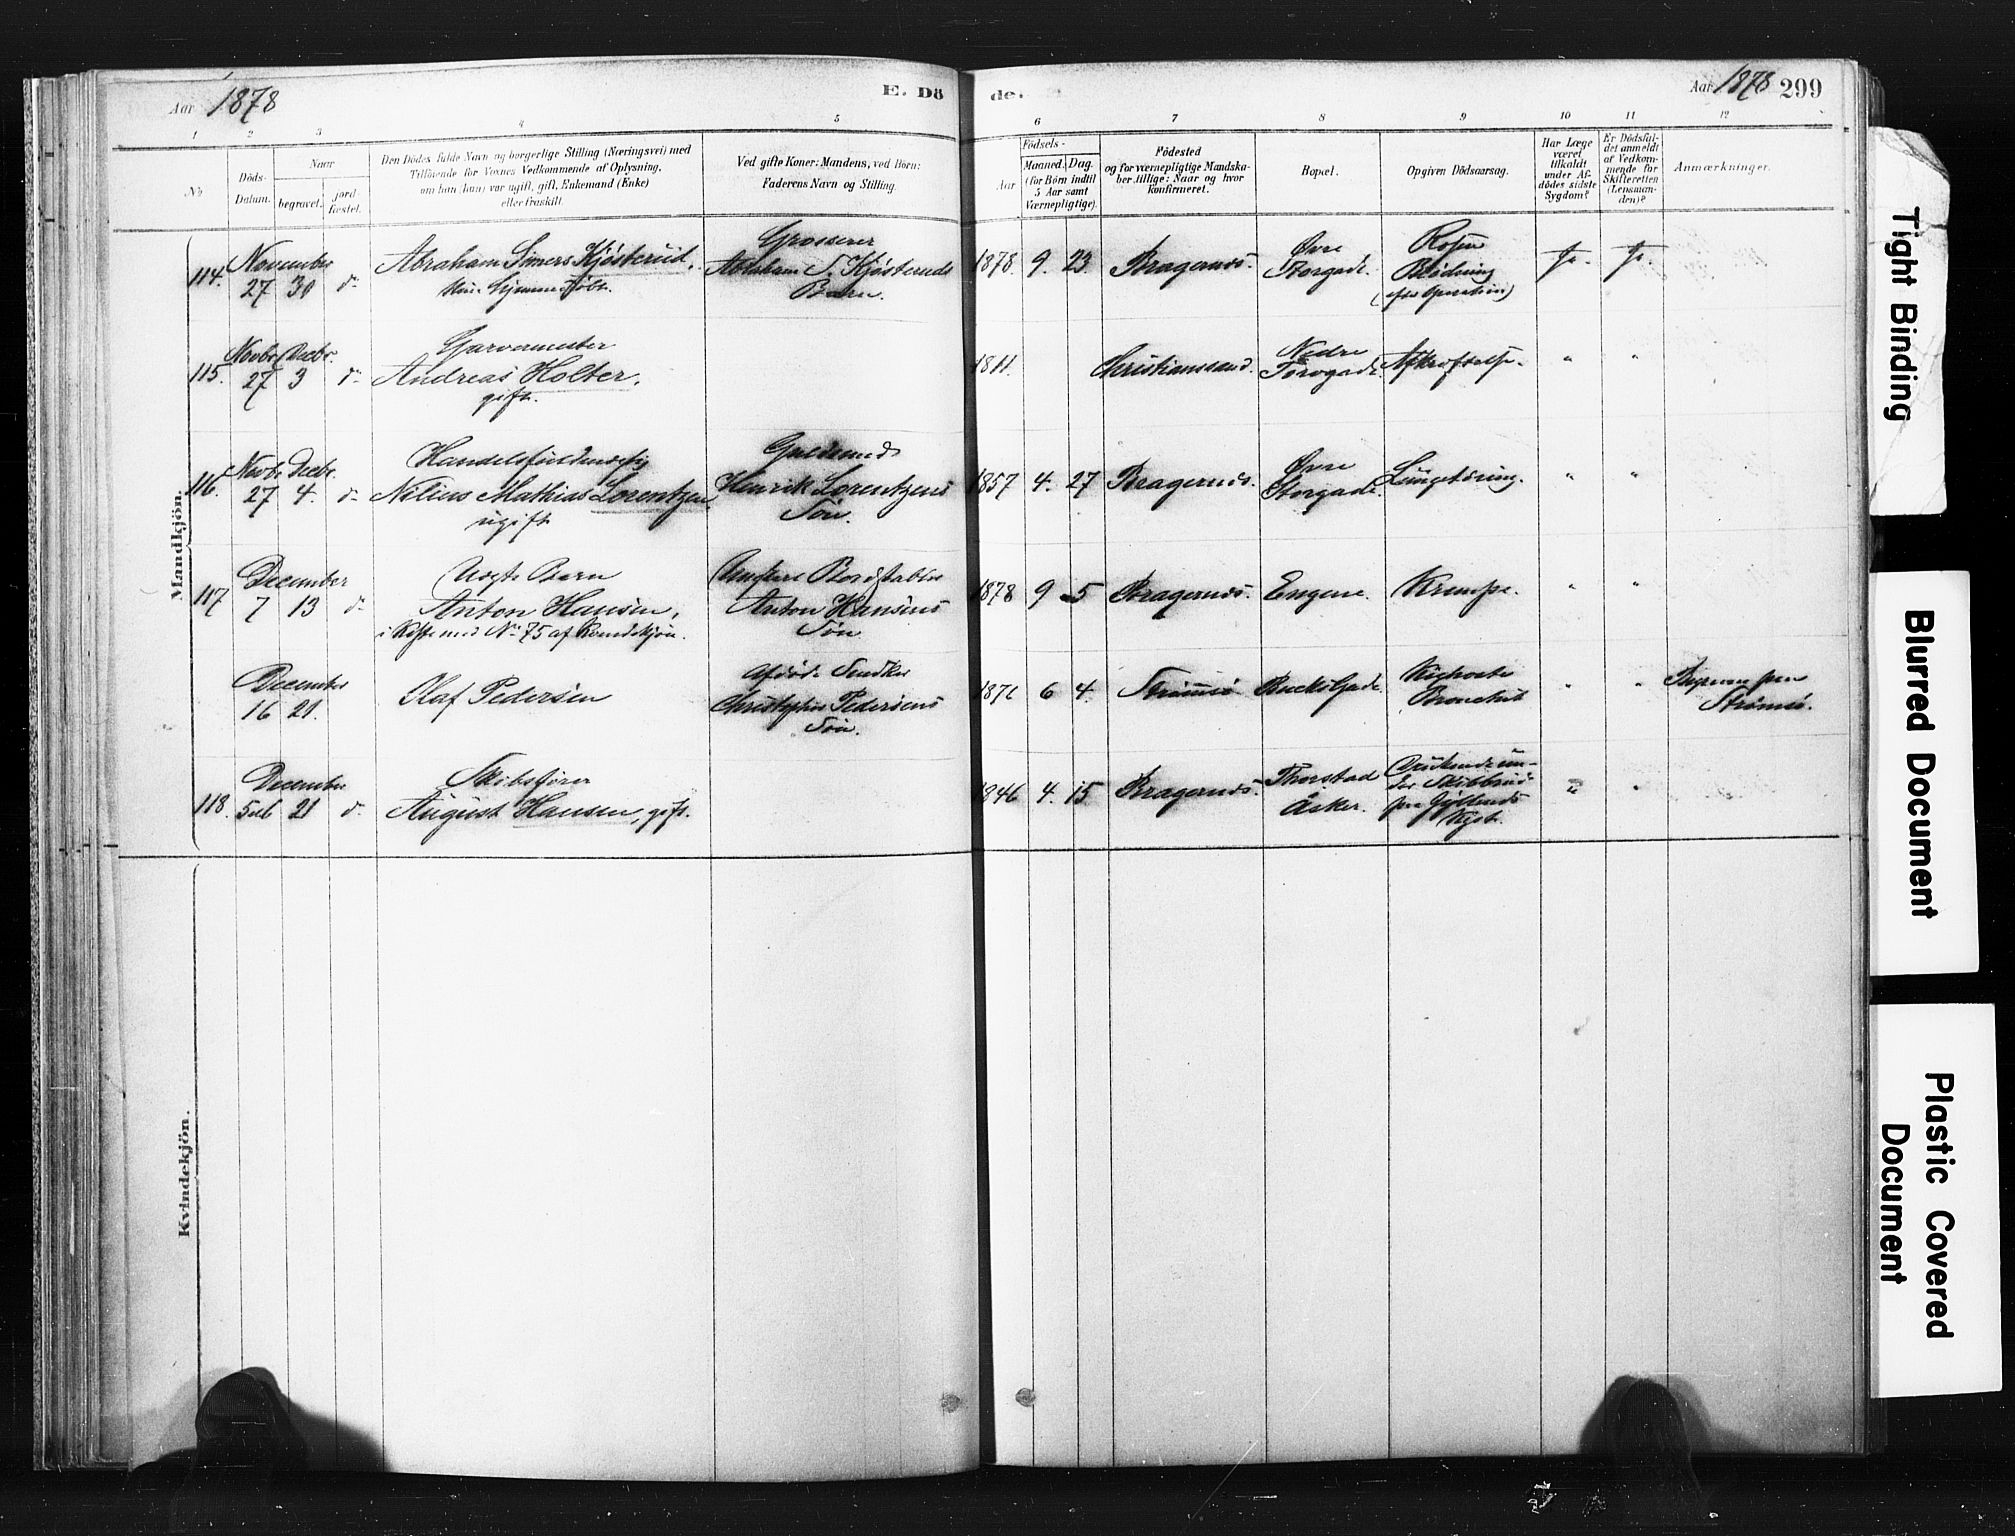 Aar 1878
E. Dö
de.
Aar 1878 299
1 2 3 4 5
6 7 8 9 10 11 12
No
Döds-
Datum.
Naar
begravet.
jord-
fæstet.
Den Dödes fulde Navn og borgerlige Stilling (Næringsvei) med
Tilföiende for Voxnes Vedkommende af Oplysning,
om han (hun) var ugift, gift, Enkemand (Enke)
eller fraskilt.
Ved gifte Koner: Mandens, ved Börn:
Faderens Navn og Stilling.
Födsels-
Aar
Maaned. Dag.
(for Börn indtil
5 Aar samt
Værnepligtige).
Födested
og for værnepligtige Mandska-
ber tillige: Naar og hvor
konfirmeret.
Bopæl.
Opgiven Dödsaarsag.
Har Læge
været
tilkaldt
under Af-
dödes sidste
Sygdom?
Er Dödsfal-
det anmeldt
af Vedkom-
mende for
Skifteretten
(Lensman-
den)?
Anmærkninger.
Mandkjön.
114.
November
27 30 d.
Abraham Simers Kjösterud.
Grosserer
Abraham S. Kjösteruds
Barn.
1878. 9. 23. Bragernes.
Øvre
Storgade.
Rosen
Blödning
(efter Operation)
Ja. Ja.
115.
Novbr Decbr.
27 3 d.
Garvermester
Andreas Holter.
gift.
1811. Christianssand.
Nedre
Torvgade.
Afkræftelse. " "
116.
Novbr Decbr.
27 4. d.
Handelsfuldmægtig
Nilius Mathias Lorentzen
ugift
Guldsmed
Henrik Lorentzens
Sön.
1857 4. 27 Bragernes.
Øvre
Storgade.
Lungetæring. " "
117
December
7 13 d.
Uægte Barn
Anton Hansen,
i Kiste med No 75 af Kvindekjön.
Ungkarl Bordstabler
Anton Hansens
Sön
1878 9 5 Bragernes. Engene. Krampe. " "
December
16 21.
Olaf Pedersen
Afdöde Snedker
Christopher Pedersens
Sön.
1871 6 4. Strömsö Bucks Gade.
Kighoste
Bronchit
" "
Strömsö.
118.
December
5 21 d.
Skibsförer
August Hansen, gift.
1846 4. 15 Bragernes.
Thorstad
Asker.
Druknede un-
der Skibbrud
paa Jyllands
Kyst.
" "
Kvindekjön.
Tight Binding
Blurred Document
Plastic Covered
Document